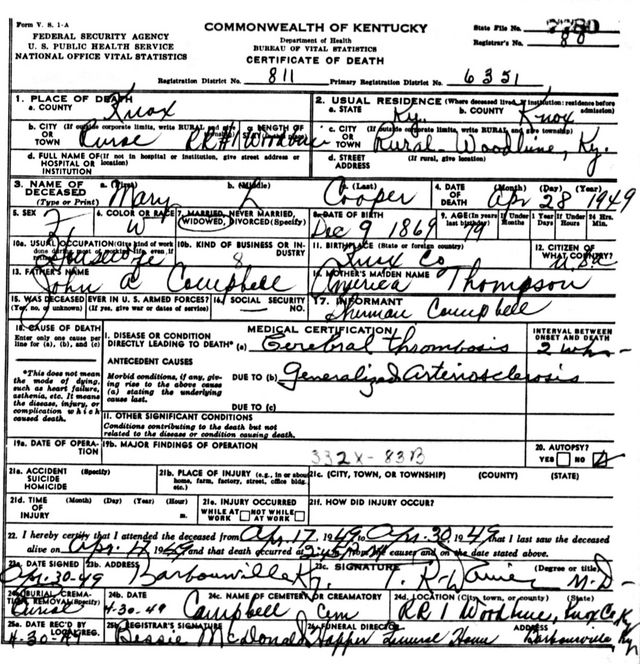 Form V. S. 1-A
FEDERAL SECURITY AGENCY
U. S. PUBLIC HEALTH SERVICE
NATIONAL OFFICE VITAL STATISTICS
COMMONWEALTH OF KENTUCKY
Department of Health
BUREAU OF VITAL STATISTICS
CERTIFICATE OF DEATH
State File No.
Registrar's No. 88
Registration District No. 811 Primary Registration District No. 6351
1. PLACE OF DEATH
a. COUNTY Knox
2. USUAL RESIDENCE (Where deceased lived, If institution: residence before admission)
a. STATE Ky. b. COUNTY Knox
b. CITY (If outside corporate limits, write RURAL and give township)
OR TOWN RR#1 Woodbine
c. LENGTH OF STAY
c. CITY (If outside corporate limits, write RURAL and give township)
OR TOWN Rural - Woodbine, Ky.
d. FULL NAME OF (If not in hospital or institution, give street address or location)
HOSPITAL OR INSTITUTION
d. STREET (If rural, give location)
ADDRESS
3. NAME OF DECEASED (Type or Print)
a. (First) Mary b. (Middle) L c. (Last) Cooper
4. DATE OF DEATH (Month) (Day) (Year) Apr 28 1949
5. SEX F
6. COLOR OR RACE W
7. MARRIED, NEVER MARRIED, WIDOWED, DIVORCED (Specify)
8. DATE OF BIRTH Dec 9 1869
9. AGE (In years last birthday) If Under 1 Year If Under 24 Hrs.
Months Days Hours Min.
10a. USUAL OCCUPATION (Give kind of work done during most of working life, even if retired) Housewife
10b. KIND OF BUSINESS OR INDUSTRY
11. BIRTHPLACE (State or foreign country) Knox Co
12. CITIZEN OF WHAT COUNTRY?
13. FATHER'S NAME
John L Campbell
14. MOTHER'S MAIDEN NAME
America Thompson
15. WAS DECEASED EVER IN U. S. ARMED FORCES?
(Yes, no, or unknown) (If yes, give war or dates of service)
16. SOCIAL SECURITY NO.
17. INFORMANT
Sherman Campbell
18. CAUSE OF DEATH
Enter only one cause per line for (a), (b), and (c)
MEDICAL CERTIFICATION
INTERVAL BETWEEN ONSET AND DEATH
I. DISEASE OR CONDITION
DIRECTLY LEADING TO DEATH* (a) Cerebral thrombosis 2 wks -
*This does not mean the mode of dying, such as heart failure, asthenia, etc. It means the disease, injury, or complication which caused death.
ANTECEDENT CAUSES
Morbid conditions, if any, giving rise to the above cause (a) stating the underlying cause last.
DUE TO (b) Generalized Arteriosclerosis
DUE TO (c)
II. OTHER SIGNIFICANT CONDITIONS
Conditions contributing to the death but not related to the disease or condition causing death.
19a. DATE OF OPERATION
19b. MAJOR FINDINGS OF OPERATION
332X - 83B
20. AUTOPSY?
YES NO
21a. ACCIDENT SUICIDE HOMICIDE (Specify)
21b. PLACE OF INJURY (e.g., in or about home, farm, factory, street, office bldg. etc.)
21c. (CITY, TOWN, OR TOWNSHIP) (COUNTY) (STATE)
21d. TIME OF INJURY (Month) (Day) (Year) (Hour) m.
21e. INJURY OCCURRED
WHILE AT WORK NOT WHILE AT WORK
21f. HOW DID INJURY OCCUR?
22. I hereby certify that I attended the deceased from Apr. 17, 1949 to Apr. 30, 1949 that I last saw the deceased
alive on 1949 and that death occurred at m from the causes and on the date stated above.
23a. DATE SIGNED Apr. 30-49
23b. ADDRESS Barbourville Ky.
23c. SIGNATURE T. R. (Degree or title) M.D-
24a. BURIAL, CREMATION, REMOVAL (Specify) Burial
24b. DATE 4-30-49
24c. NAME OF CEMETERY OR CREAMATORY Campbell Cem
24d. LOCATION (City, town, or county) (State) RR 1 Woodbine, Knox Co Ky
25a. DATE REC'D BY LOCAL REG. 4-30-49
25b. REGISTRAR'S SIGNATURE Bessie McDonald
26. FUNERAL DIRECTOR Hopper Funeral Home
ADDRESS Barbourville, Ky